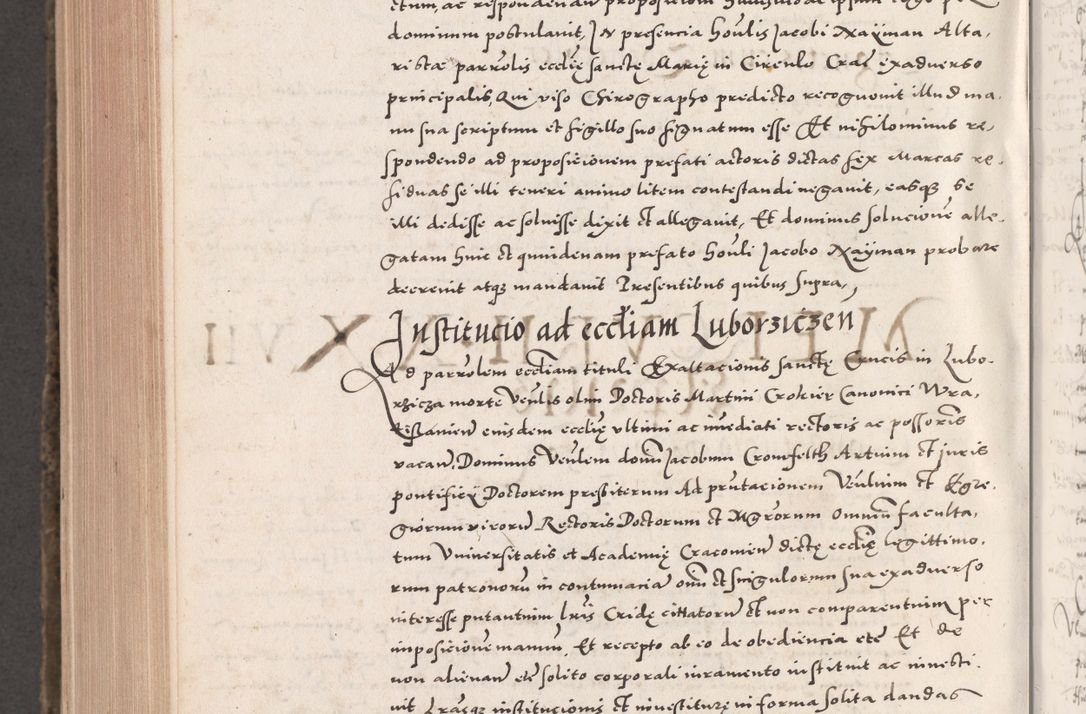 dominum postulavit, In presencia houlis Jacobi Nayman Alta,
ristae parrolis ecclię sanctę Marię in Circulo Crac exadverso
principalis, Qui viso Chirographo predicto recognovit illud ma,
nu sua scriptum et sigillo suo signatum esse Et nihilominus re,
spondendo ad proposicionem prefati actoris dictas sex Marcas re,
siduas se illi teneri animo litem contestandi negavit, easqz se
illi dedisse ac solvisse dixit et allegavit, Et dominus solucione alle,
gatam huic et quuidenam prefato houli Jacobo Nayman probare
decrevit atqz mandavit Presentibus quibus supra,
Institucio ad eccliam Luborziczen
Ad parrolem eccliam tituli Exaltacionis sanctę Crucis in Lubo,
rzicza morte Venlis olim Doctoris Martini Crokier Canonici Wra,
tislavien eiusdem ecclię ultimi ac imediati rectoris ac possoris
vacan, Dominus Venlem domi Jacobum Cromfelth Artium et juris
pontificij Doctorem presbiterum Ad prntacionem Venlium et Egre,
giorum virorum Rectoris Doctorum et Mgrorum omnium faculta,
tum Universitatis et Academię Cracovien dictę ecclię legittimo,
rum patronorum in contumacia omi et singulorum sua exadverso
interesse putantium lris Cridę cittatorum et non comparentium per
imposicionem manuum, Et recepto ab eo de obediencia etc Et de
non alienan etc solito corporali iuramento instituit ac investi,
vit Lrasqz institucionis et investiturę in forma solita dandas